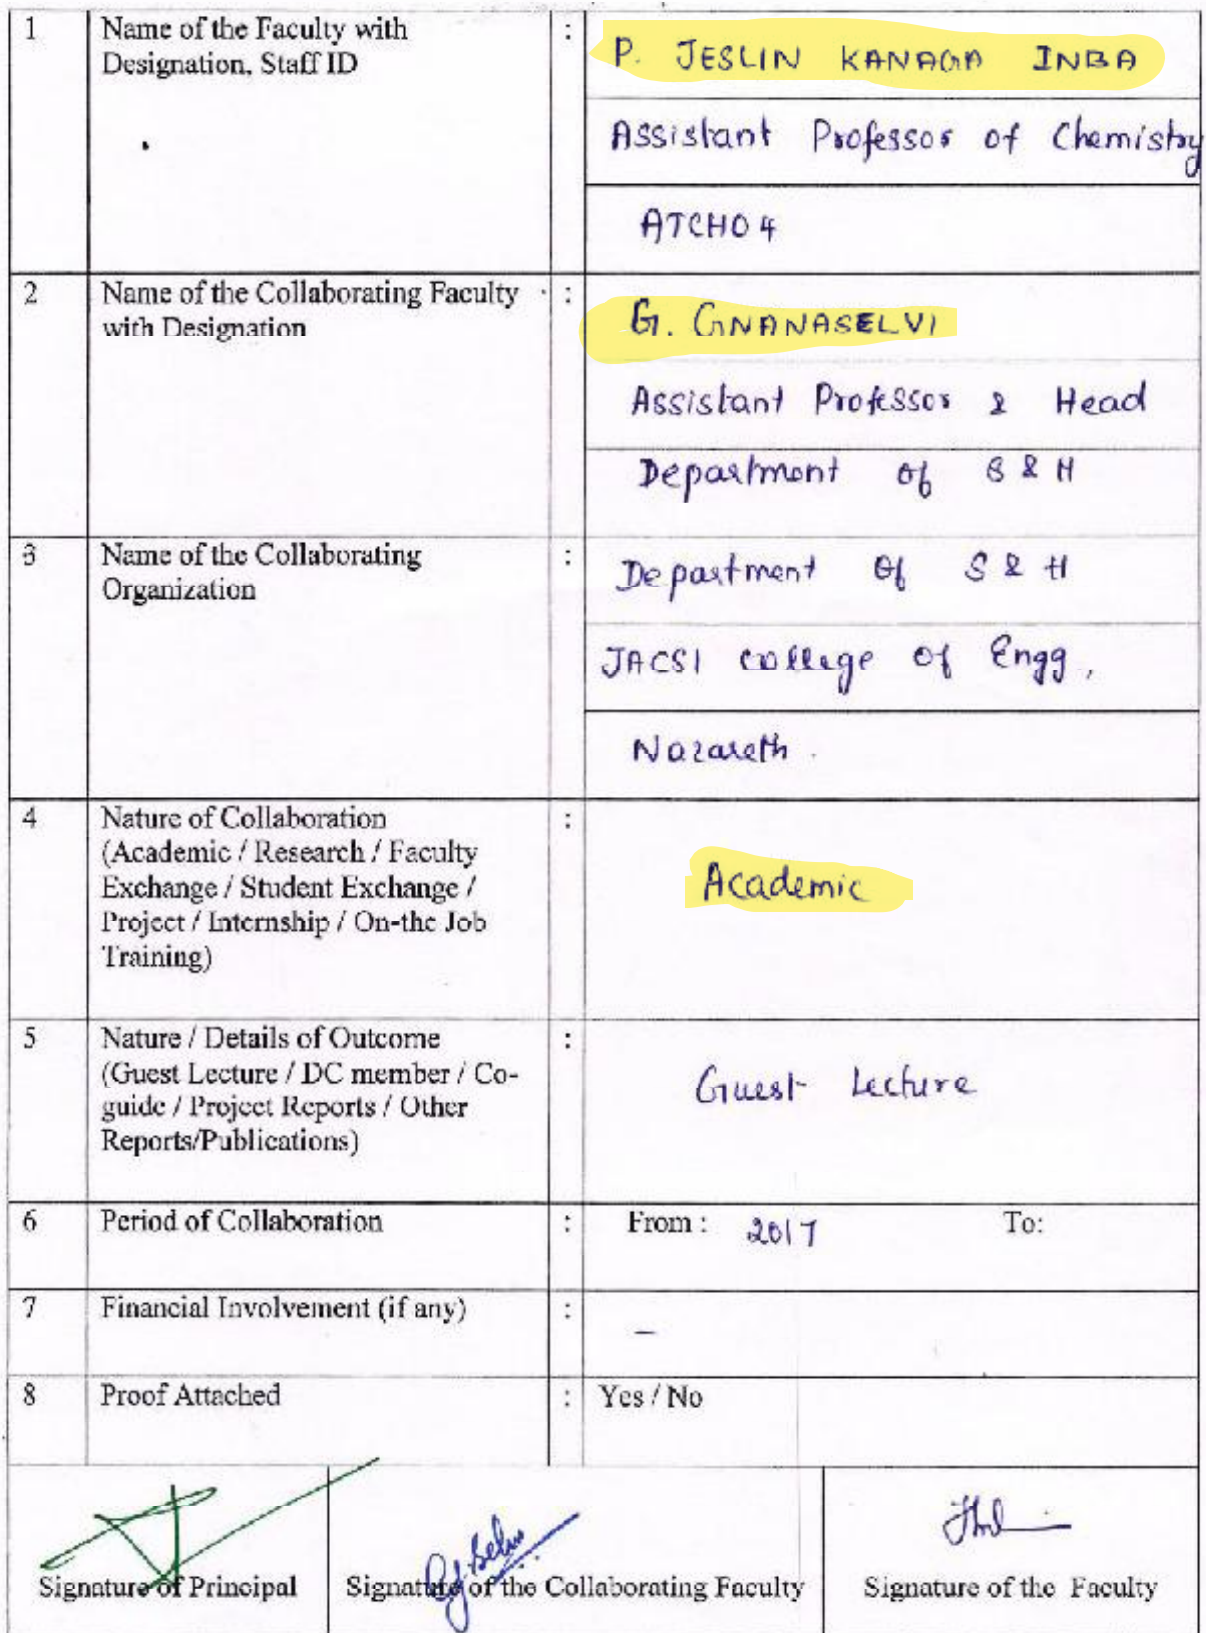 1 Name of the Faculty with : P. JESLIN KANAGA INBA
Designation, Staff ID
Assistant Professor of Chemistry
ATCH04
2 Name of the Collaborating Faculty : G. GNANASELVI
with Designation
Assistant Professor & Head
Department of S & H
3 Name of the Collaborating : Department of S & H
Organization
JACSI college of Engg,
Nazareth.
4 Nature of Collaboration :
(Academic / Research / Faculty
Exchange / Student Exchange / Academic
Project / Internship / On-the Job
Training)
5 Nature / Details of Outcome :
(Guest Lecture / DC member / Co-
guide / Project Reports / Other Guest Lecture
Reports/Publications)
6 Period of Collaboration : From : 2017 To:
7 Financial Involvement (if any) : –
8 Proof Attached : Yes / No
Signature of Principal Signature of the Collaborating Faculty Signature of the Faculty